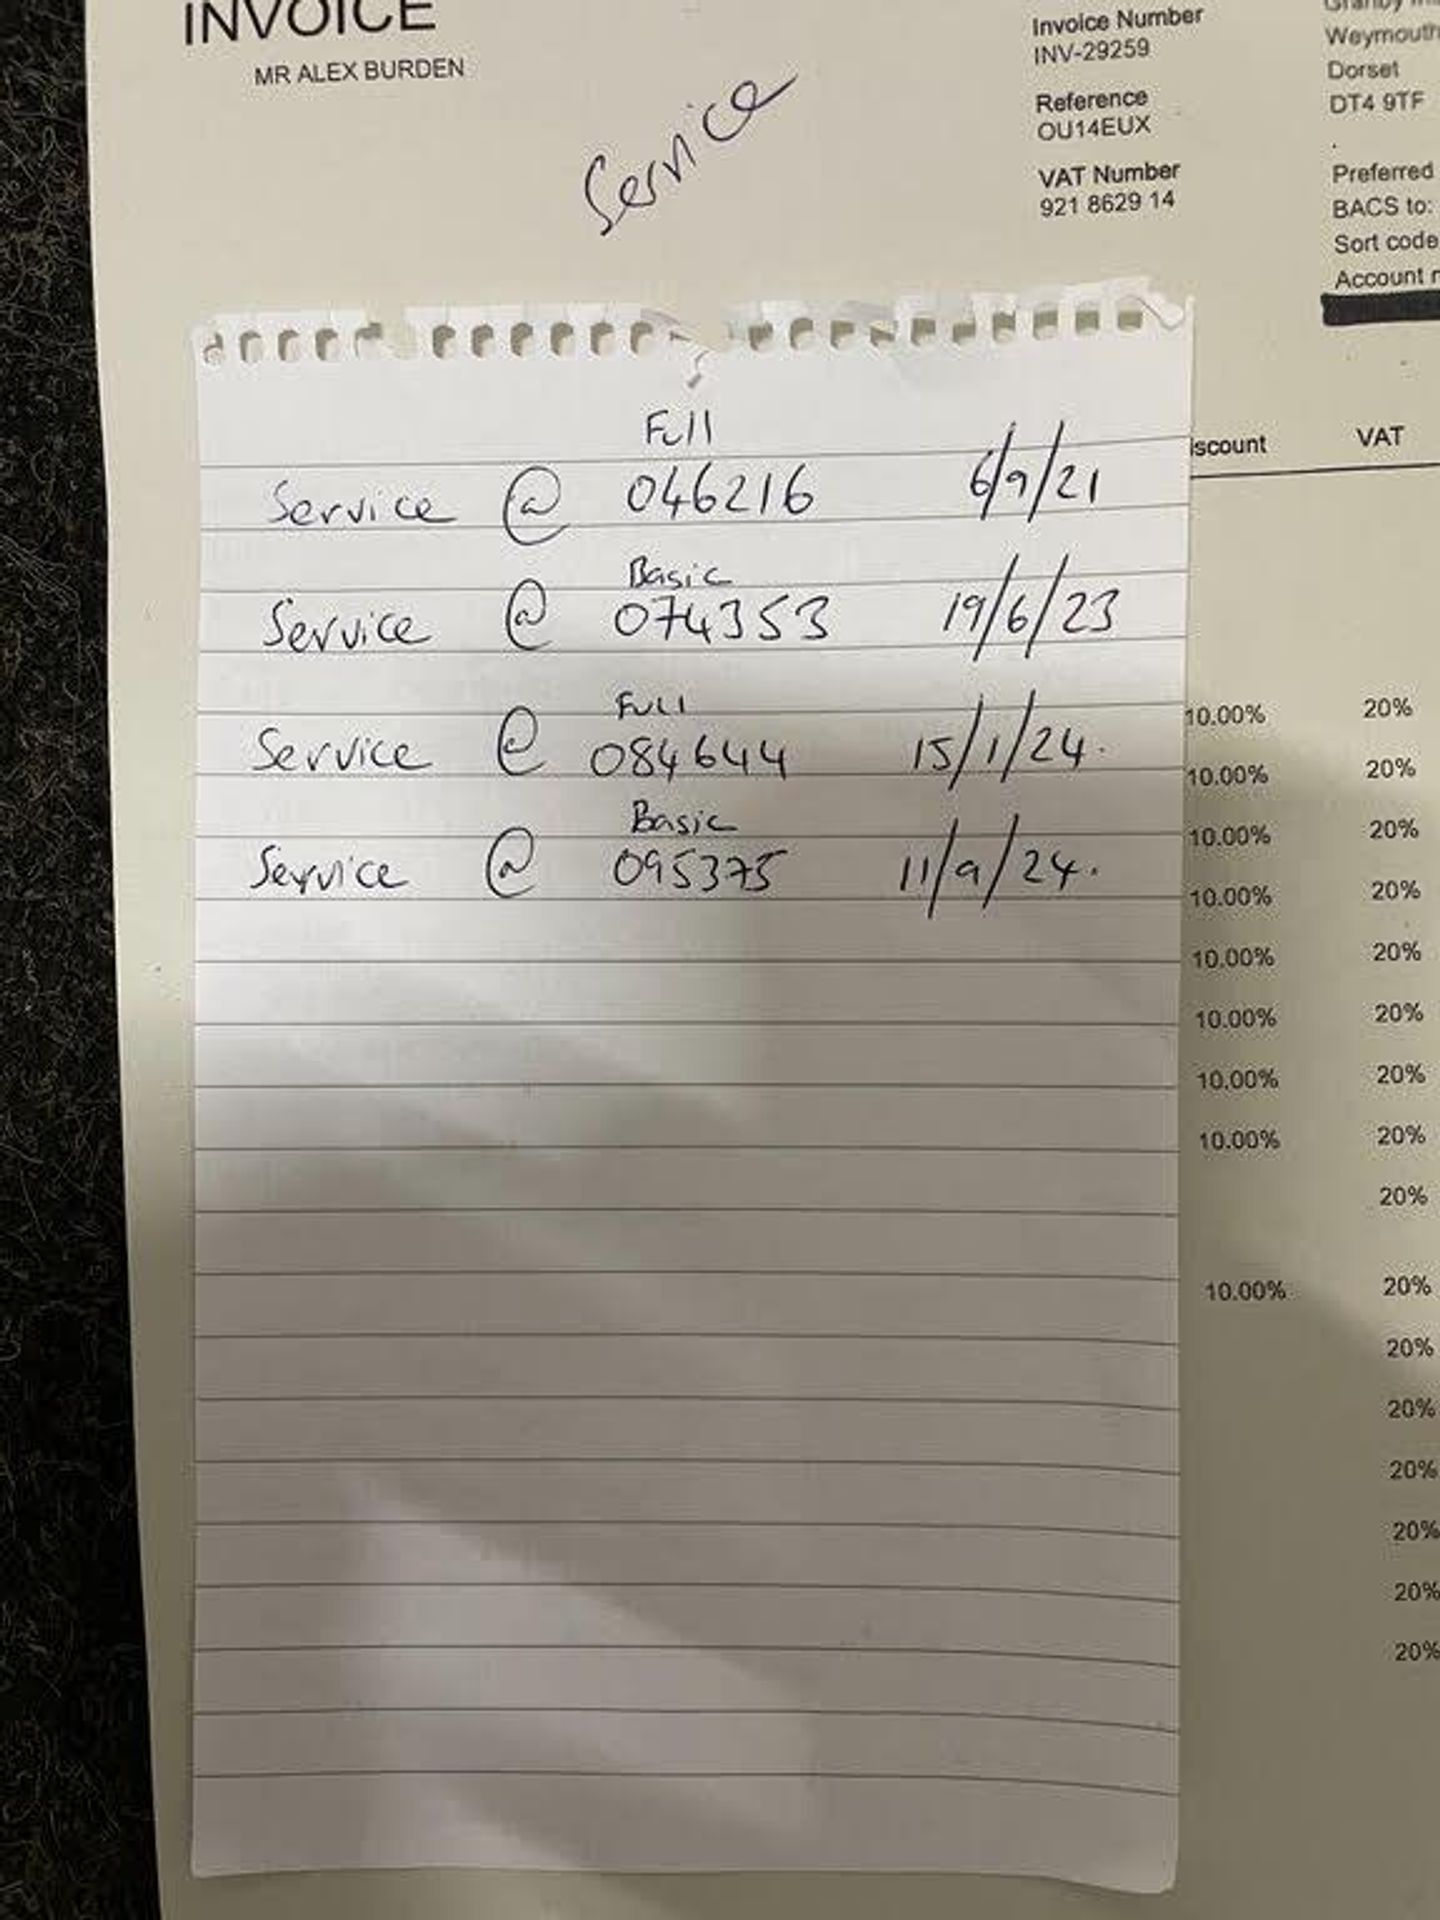 INVOICE
MR ALEX BURDEN
Service
Invoice Number
INV-29259
Reference
OU14EUX
VAT Number
921 8629 14
Granby
Weymouth
Dorset
DT4 9TF
Preferred
BACS to:
Sort code
Account
iscount VAT
Full
Service @ 046216 6/9/21
Basic
Service @ 074353 19/6/23
Full
Service @ 084644 15/1/24.
Basic
Service @ 095375 11/9/24.
10.00% 20%
10.00% 20%
10.00% 20%
10.00% 20%
10.00% 20%
10.00% 20%
10.00% 20%
10.00% 20%
20%
10.00% 20%
20%
20%
20%
20%
20%
20%